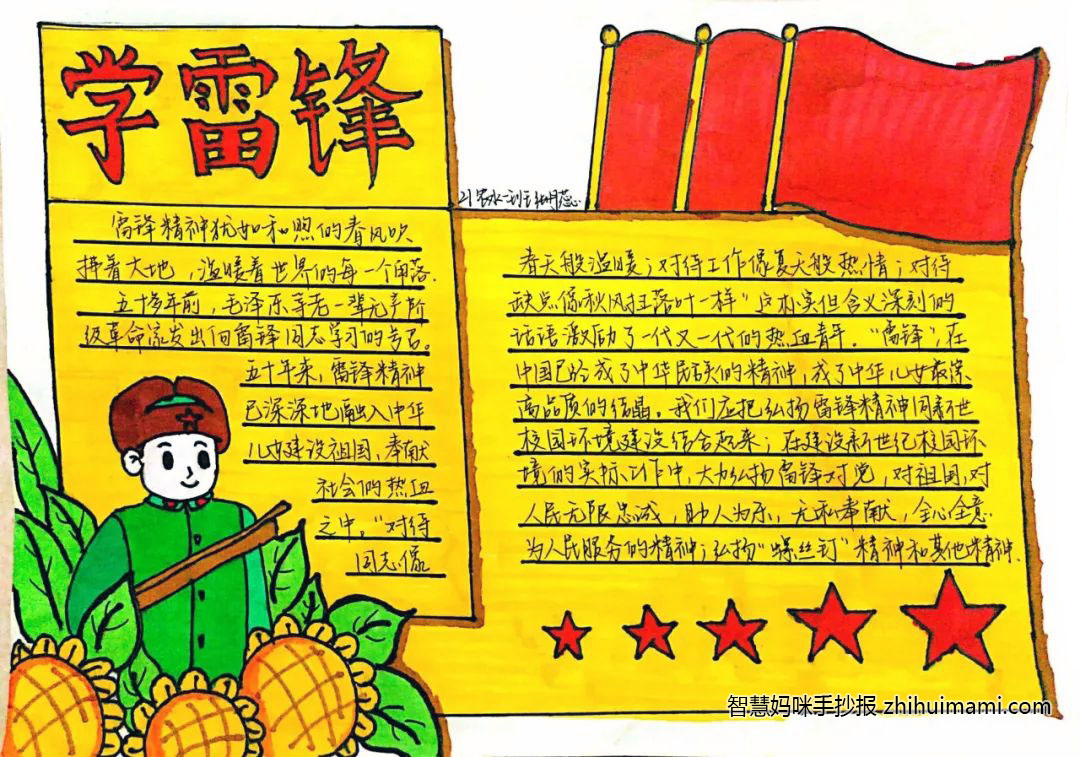 学雷锋
雷锋精神犹如和煦的春风吹
拂着大地，温暖着世界的每一个角落.
五十多年前，毛泽东等老一辈无产阶
级革命家发出向雷锋同志学习的号召。
五十年来，雷锋精神
已深深地融入中华
儿女建设祖国，奉献
社会的热血
之中。“对待
同志像
春天般温暖；对待工作像夏天般热情；对待
缺点像秋风扫落叶一样”这朴实但含义深刻的
话语激励了一代又一代的热血青年。“雷锋”，在
中国已给成了中华民族的精神，成了中华儿女最深
高品质的结晶。我们应把弘扬雷锋精神同新世
校园环境建设结合起来；在建设新世纪校园环
境的实际工作中，大力弘扬雷锋对党，对祖国，对
人民无限忠诚，助人为乐，无私奉献，全心全意
为人民服务的精神；弘扬“螺丝钉”精神和其他精神.
智慧妈咪手抄报 zhihuimami.com